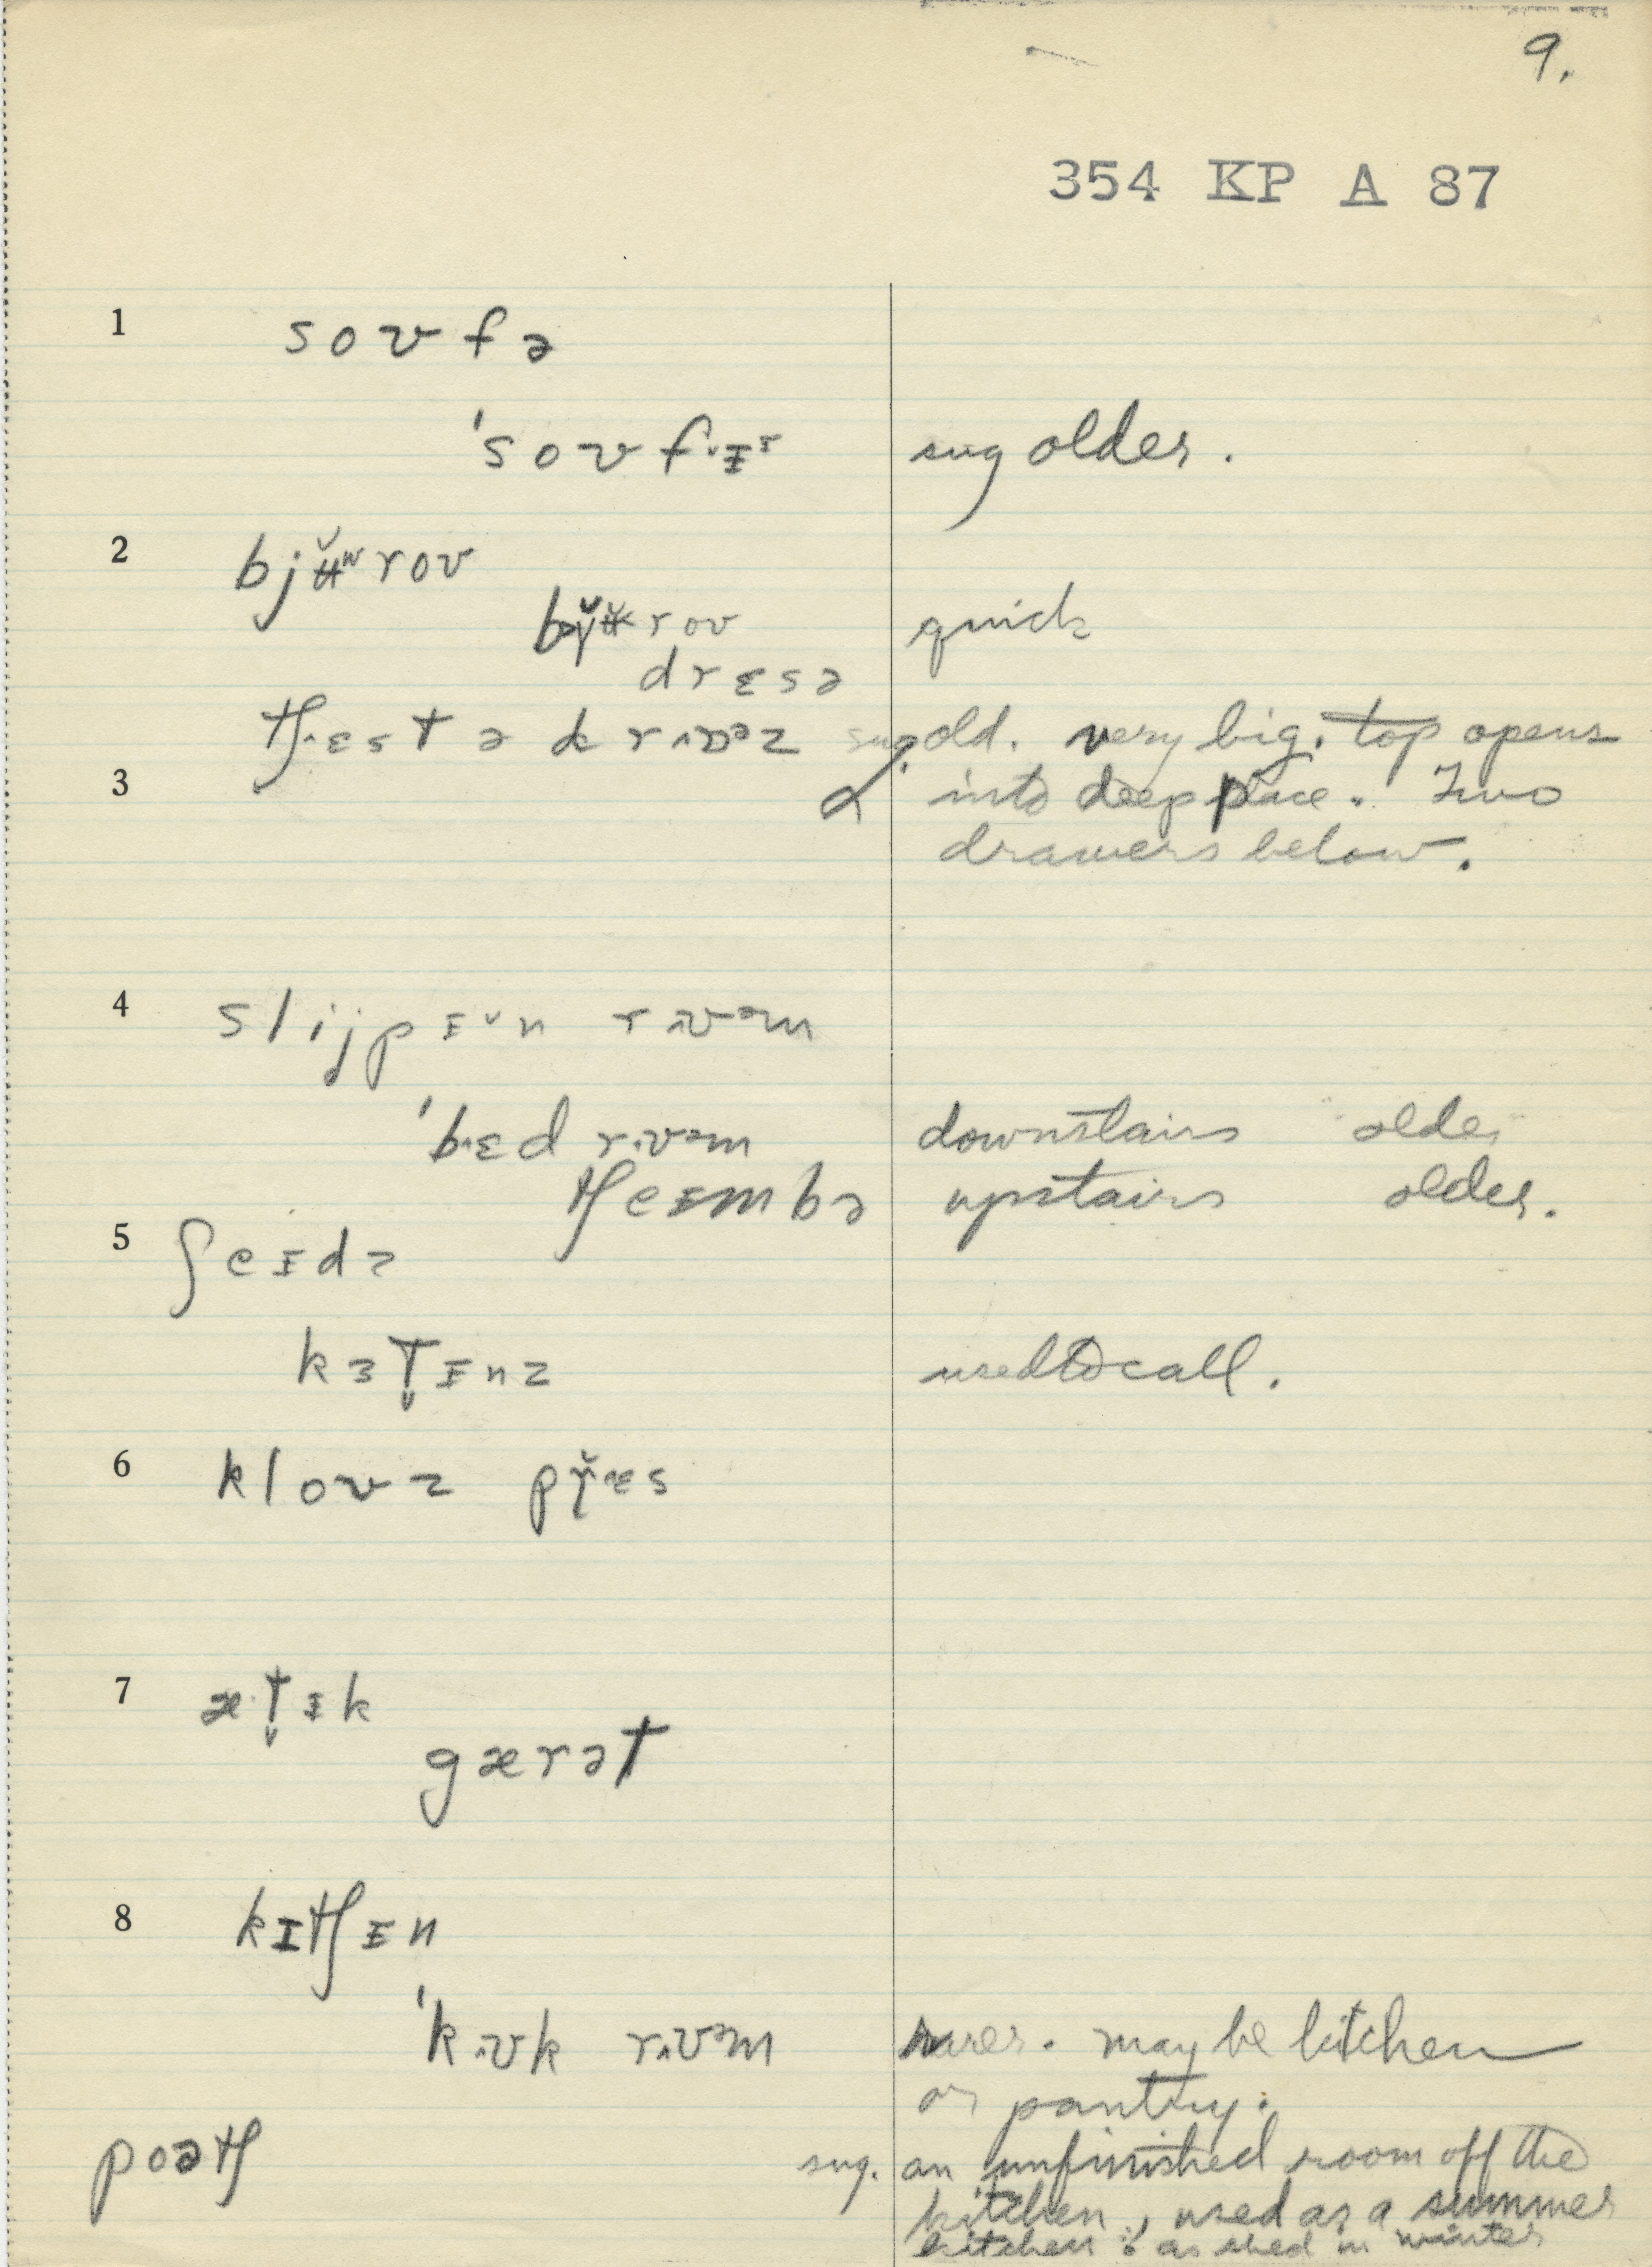 9.
354 KP A 87
1 soʊfə
ˈsoʊfɪ sug older.
2 bjʉ̆ʷroʊ
roʊ quick
drɛsə
tʃɛst ə drɒəz sug. old. very big. top opens
3 into deep place. Two
drawers below.
4 slijpɪn rʊəm
ˈbɛd rʊəm downstairs older
tʃeɪmbə upstairs older.
5 ʃeɪdz
kɜt̬ɪnz used to call.
6 kloʊz prɛs
7 æt̬ɪk
gærət
8 kɪtʃɪn
ˈkʊk rʊəm rarer. may be kitchen
or pantry.
poətʃ sug. an unfinished room off the
kitchen, used as a summer
kitchen & as shed in winter